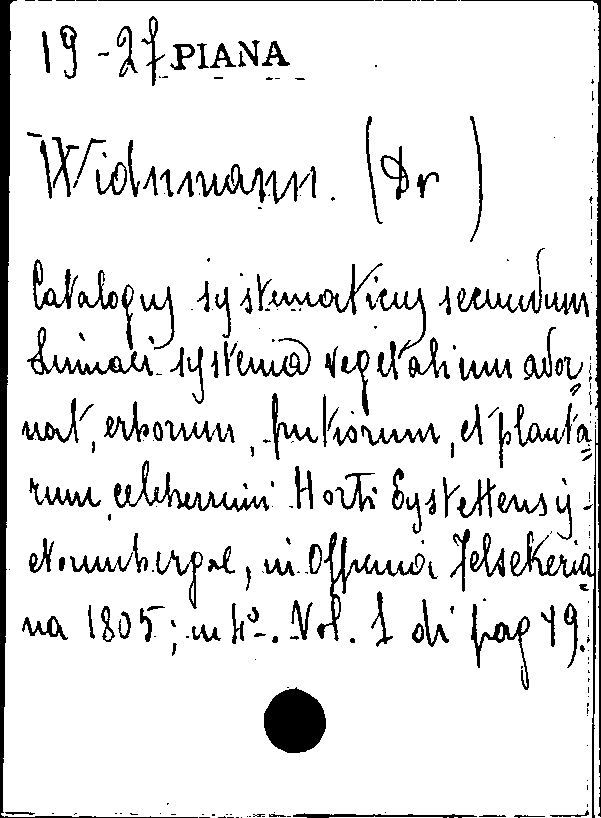 19-27 PIANA
Widnmann. (Dr)
Catalogus systematicus secundum
Linnaei systema vegetabilium ador=
nat, erborum, frutiorum, et planta=
rum celeberrimi Horti Eystettensij-
Norimbergae, in Officina Felsekeria=
na 1805; in 4º. Vol. 1 di pag 79.